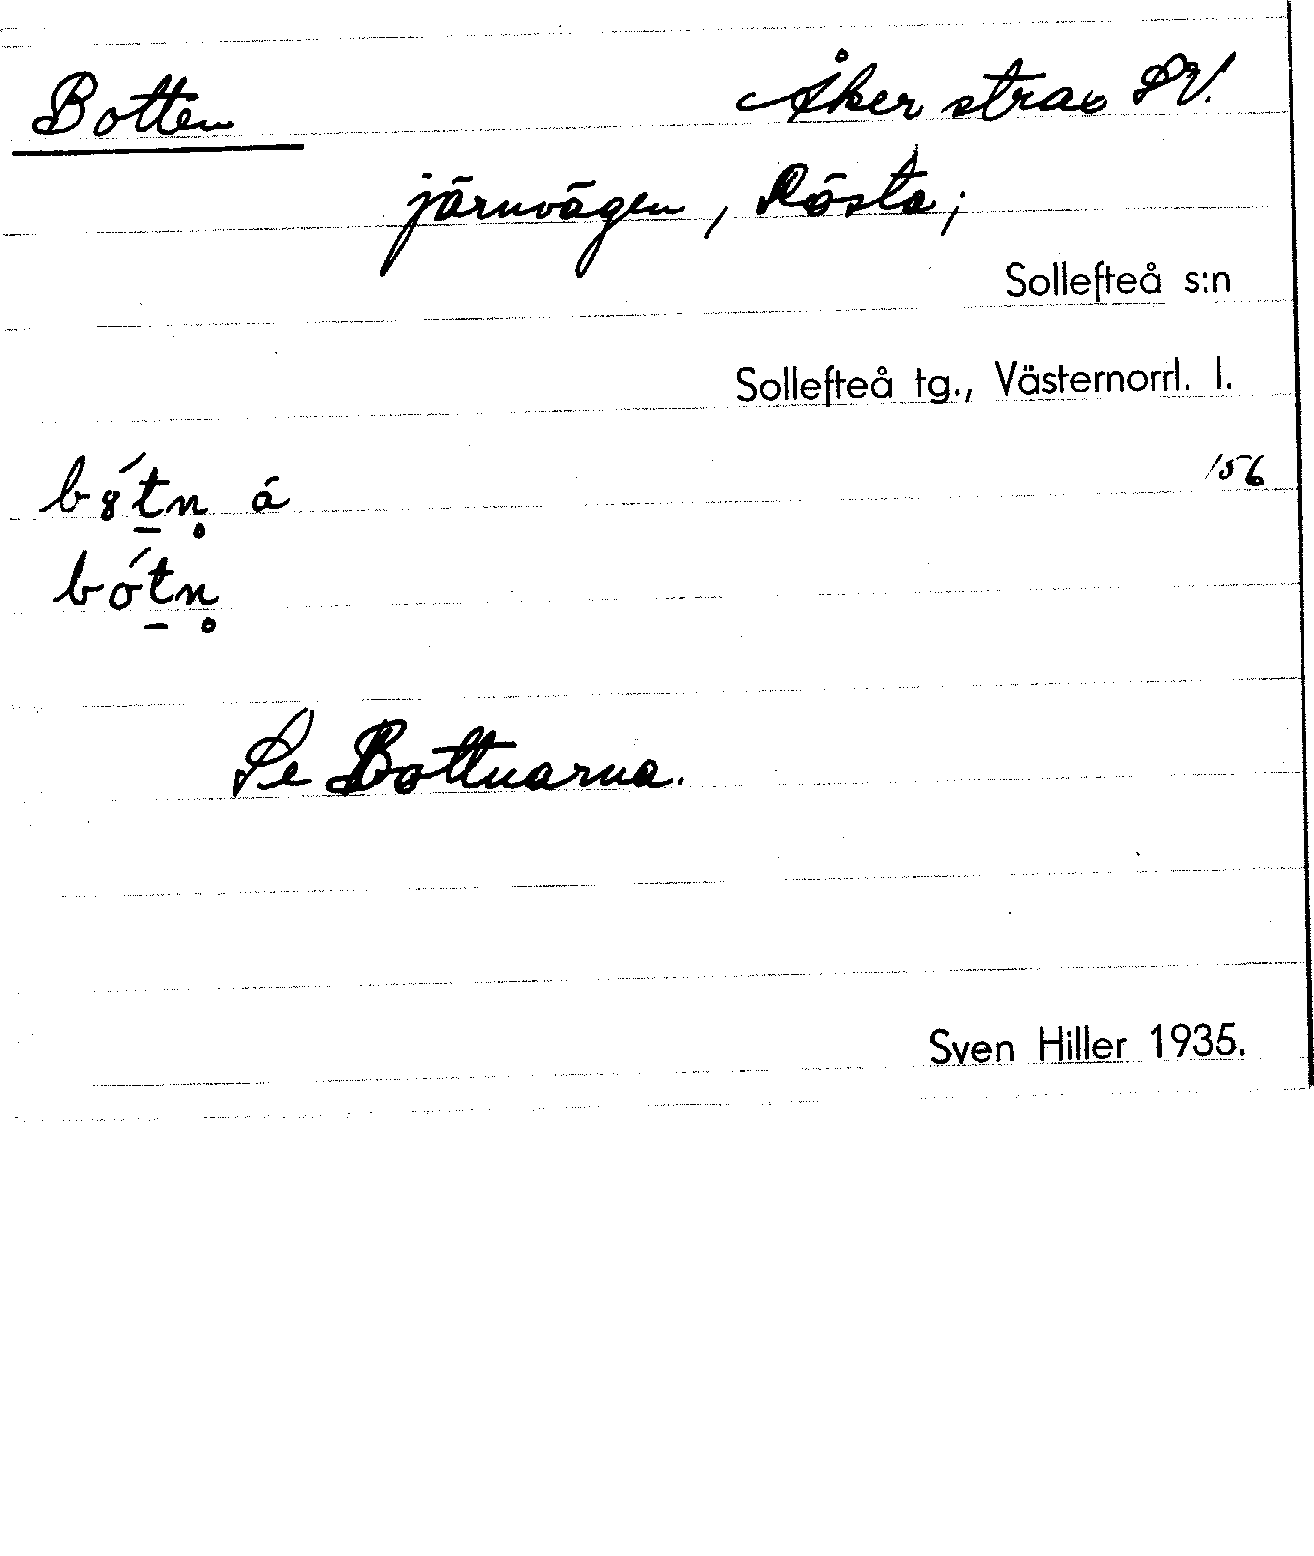 Botten Åker strax SV.
järnvägen, Rösta;
Sollefteå s:n
Sollefteå tg., Västernorrl. l.
156
bótn̥
Se Bottnarna.
Sven Hiller 1935.